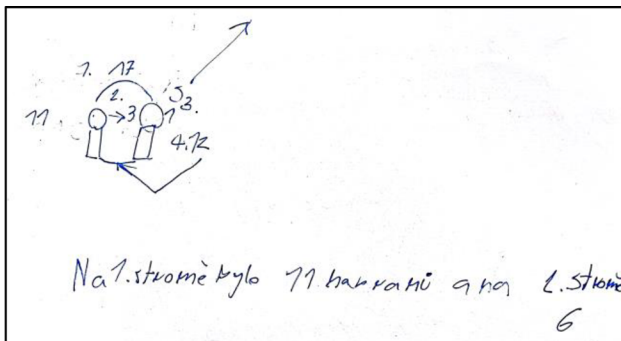 1. 17
2.
5
11 → 3 1 3.
4. 12
Na 1. stromě bylo 11 havranů a na 2. stromě
6